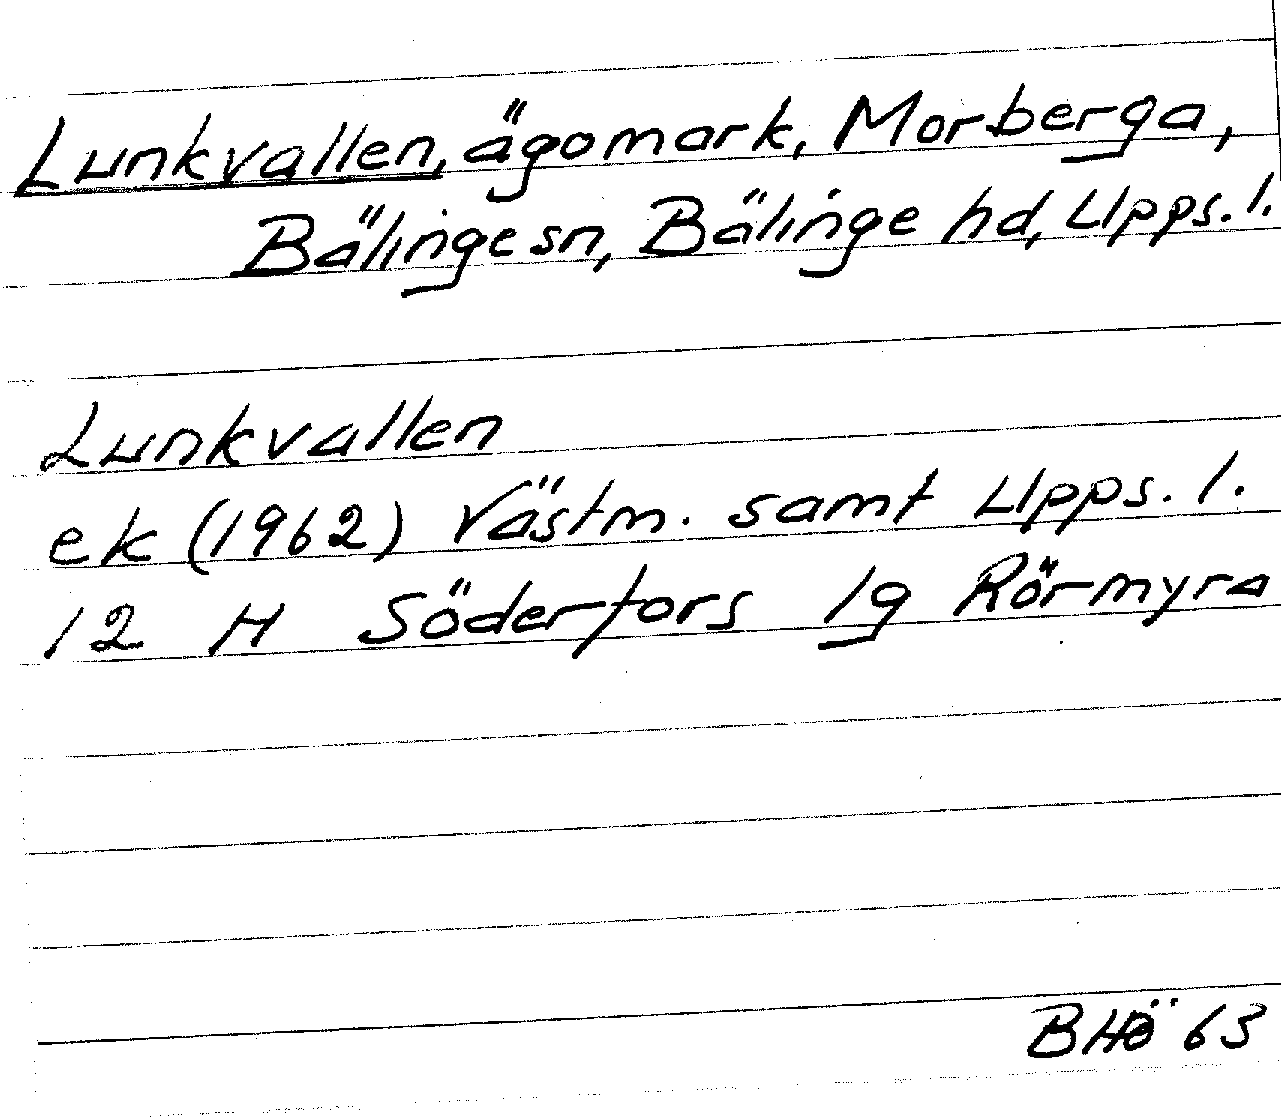 Lunkvallen, ägomark, Morberga,
Bälinge sn, Bälinge hd, Upps. l.
Lunkvallen
ek (1962) Västm. samt Upps. l.
12 H Söderfors 1g Rörmyra
BHö 63